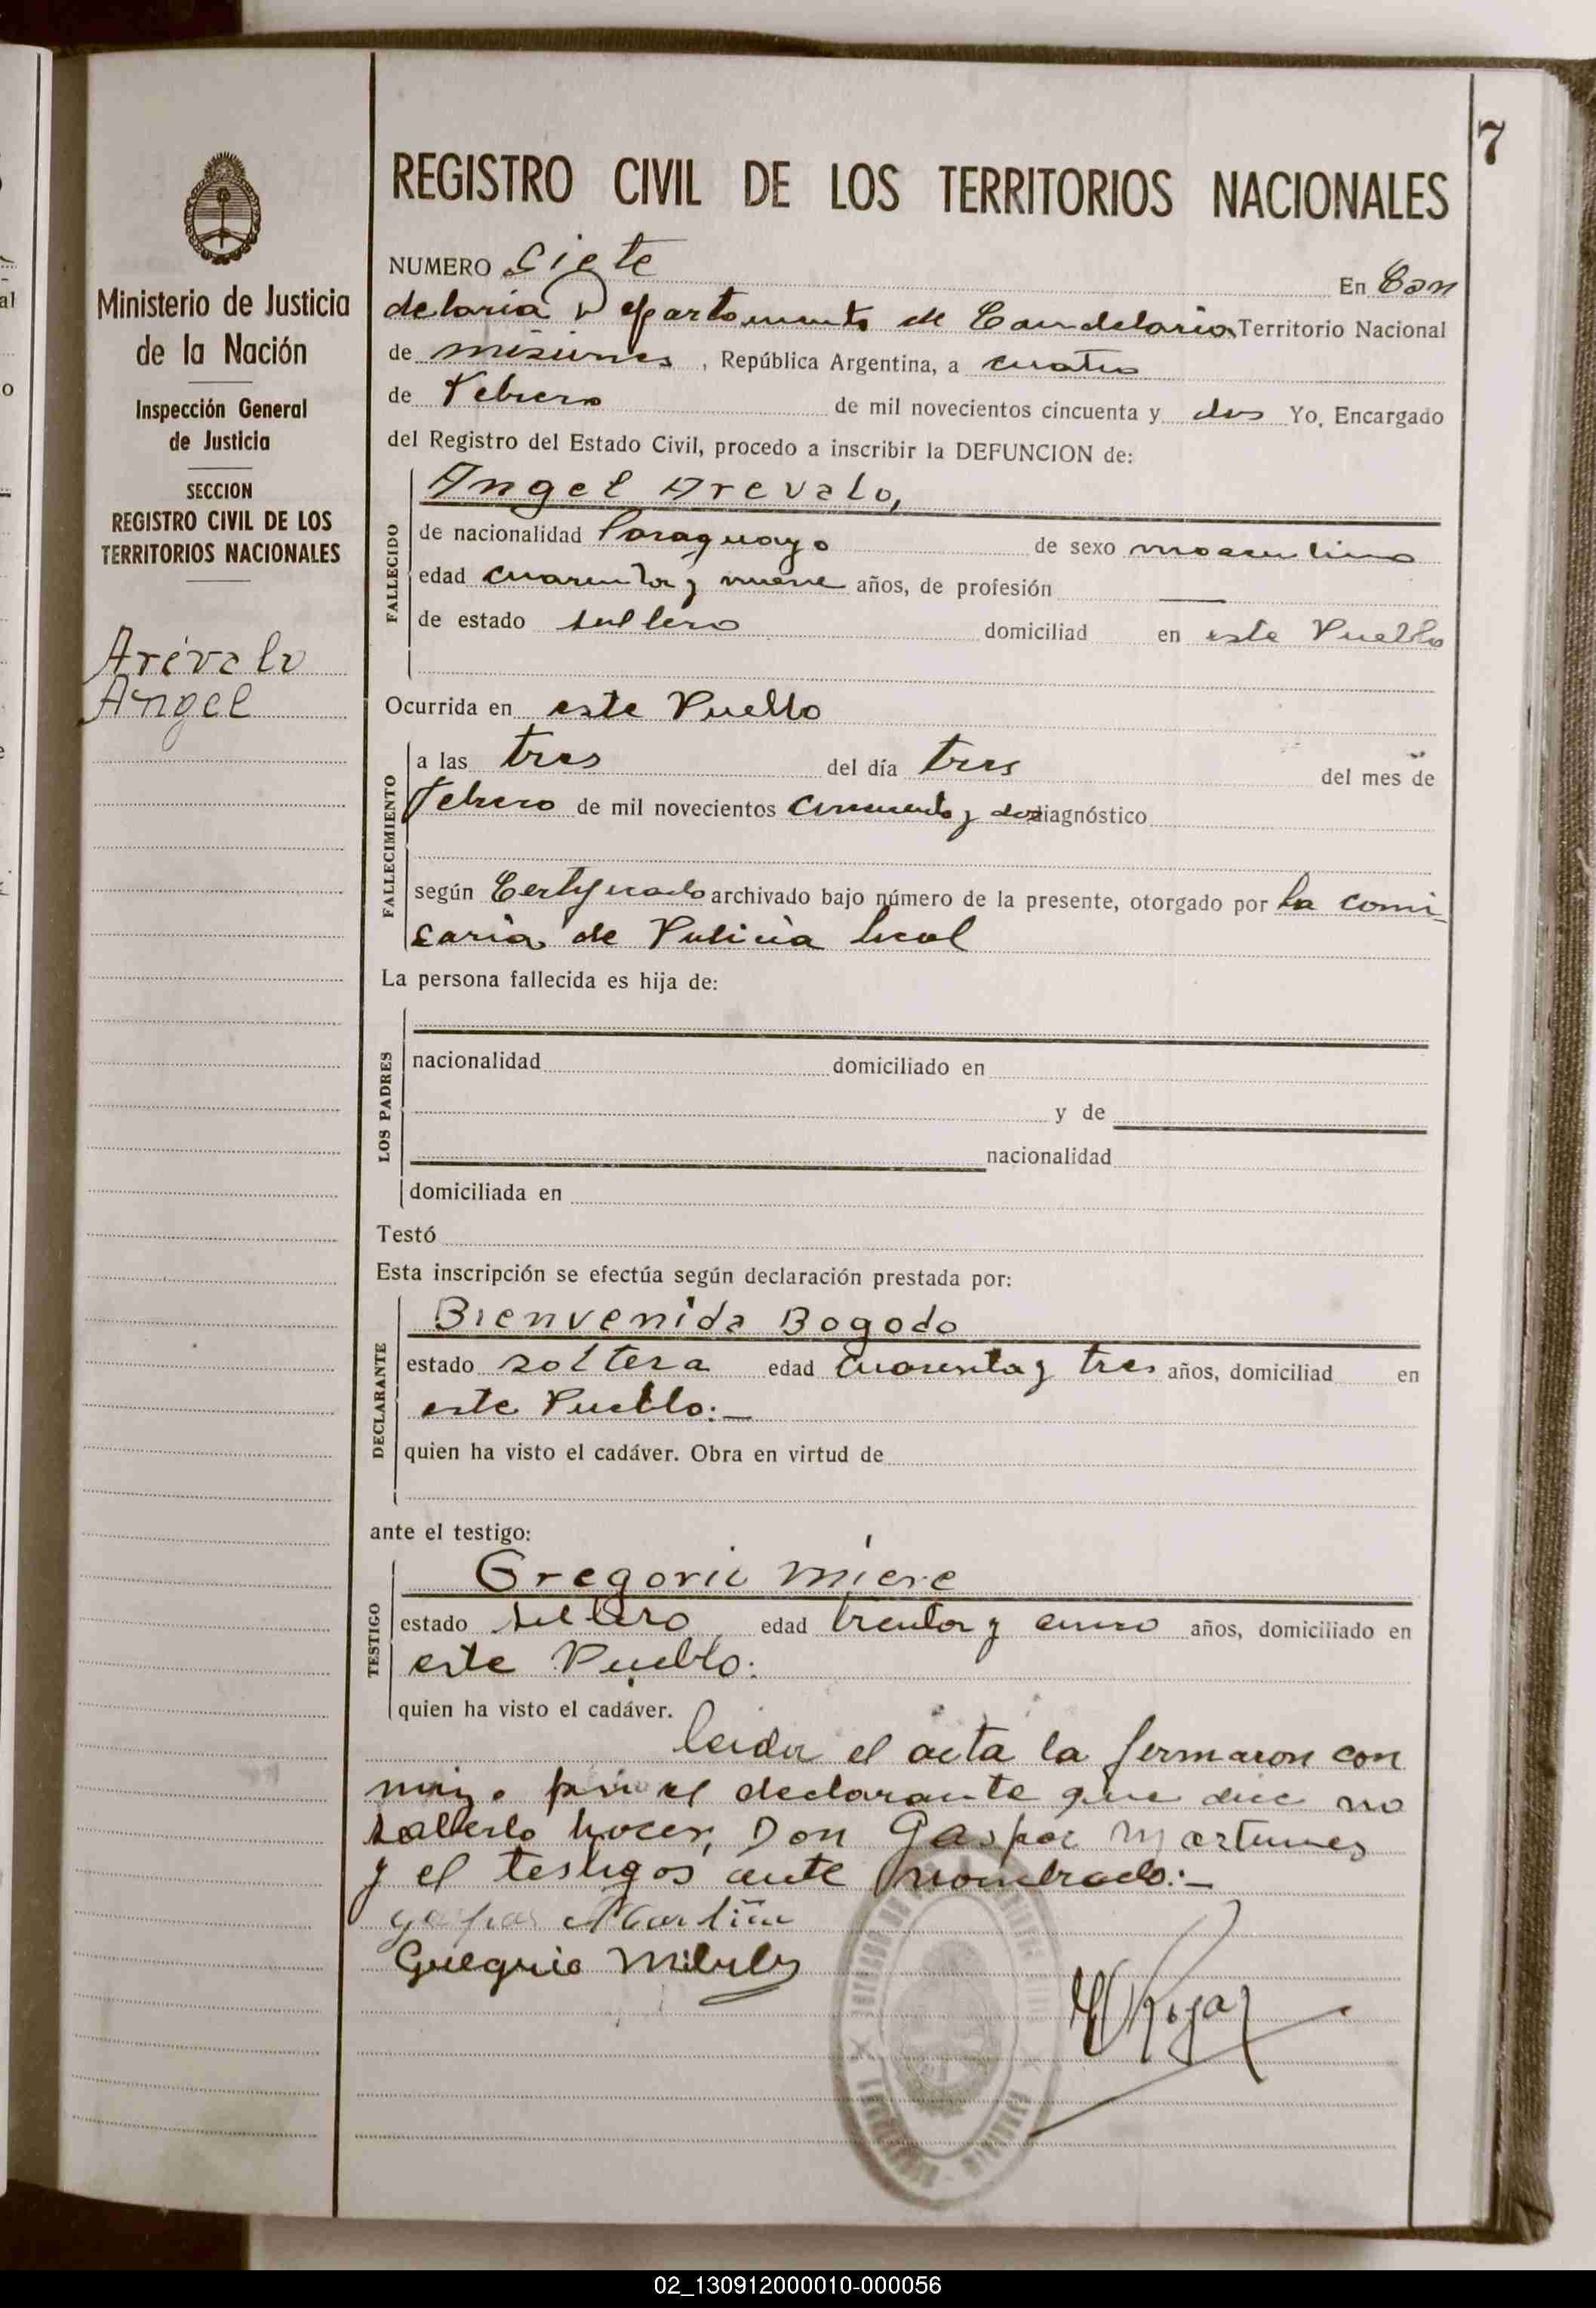 7
REGISTRO CIVIL DE LOS TERRITORIOS NACIONALES
Ministerio de Justicia
de la Nación
Inspección General
de Justicia
SECCION
REGISTRO CIVIL DE LOS
TERRITORIOS NACIONALES
Arévalo
Angel
NUMERO Siete En Can
delaria Departamento de Candelaria Territorio Nacional
de misiones, República Argentina, a cuatro
de Febrero de mil novecientos cincuenta y dos Yo, Encargado
del Registro del Estado Civil, procedo a inscribir la DEFUNCION de:
Angel Arevalo,
FALLECIDO
de nacionalidad Paraguayo de sexo masculino
edad cuarenta y nueve años, de profesión —
de estado soltero domiciliad en este Pueblo
Ocurrida en este Pueblo
FALLECIMIENTO
a las tres del día tres del mes de
Febrero de mil novecientos cincuenta y dos diagnóstico
según Certificado archivado bajo número de la presente, otorgado por la comi-
saria de Policia local
La persona fallecida es hija de:
LOS PADRES
nacionalidad domiciliado en
y de
nacionalidad
domiciliada en
Testó
Esta inscripción se efectúa según declaración prestada por:
Bienvenida Bogado
DECLARANTE
estado soltera edad cuarenta y tres años, domiciliad en
este Pueblo:—
quien ha visto el cadáver. Obra en virtud de
ante el testigo:
TESTIGO
Gregorio
estado soltero edad treinta y cinco años, domiciliado en
este Pueblo:
quien ha visto el cadáver.
leida el acta la firmaron con
migo por el declarante que dice no
saberlo hacer, Don Gaspar Martines
y el testigos ante nombrado:—
Gaspar
Gregorio
Rojas
02_130912000010-000056